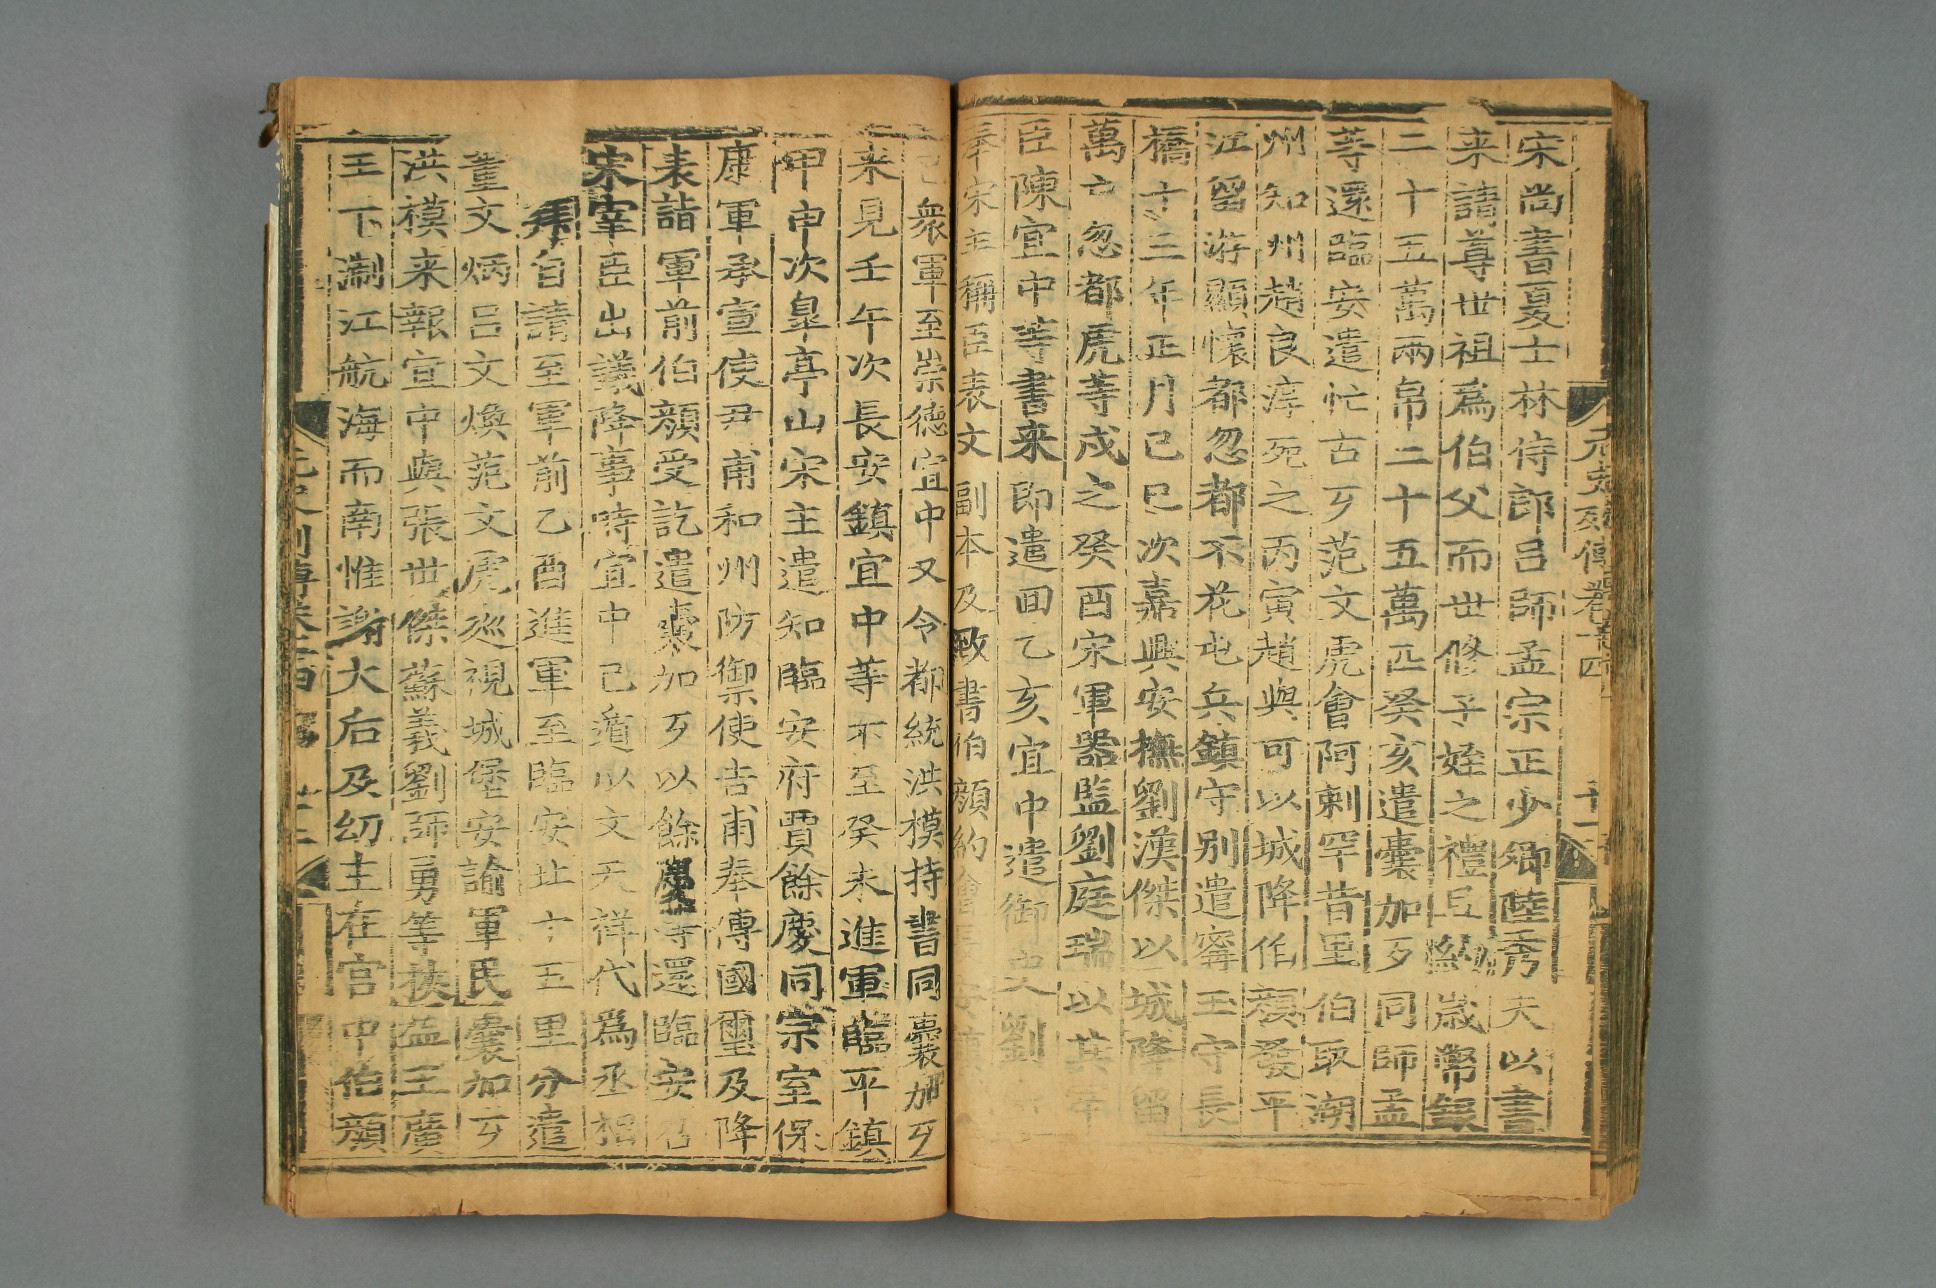 宋尚書夏士林侍郎呂師孟宗正少卿陸秀夫以書
来請尊世祖爲伯父而世修子姪之禮且約歲幣銀
二十五萬兩帛二十五萬匹癸亥遣囊加歹同師孟
等還臨安遣忙古歹范文虎會阿剌罕昔里伯取湖
州知州趙良淳死之丙寅趙與可以城降伯顔發平
江留游顯懷都忽都不花屯兵鎮守别遣寗玉守長
橋十三年正月己巳次嘉興安撫劉漢傑以城降留
萬户忽都虎等戍之癸酉宋軍器監劉庭瑞以其宰
臣陳宜中等書来即遣囬乙亥宜中遣御史劉
奉宋主稱臣表文副本及致書伯顔約會長安鎮
衆軍至崇徳宜中又令都統洪模持書同囊加歹
来見壬午次長安鎮宜中等不至癸未進軍臨平鎮
甲申次臯亭山宋主遣知臨安府賈餘慶同宗室保
康軍承宣使尹甫和州防禦使吉甫奉傳國璽及降
表詣軍前伯顔受訖遣囊加歹以餘慶等還臨安召
宋宰臣出議降事時宜中已遁以文天祥代爲丞相
拜自請至軍前乙酉進軍至臨安北十五里分遣
董文炳呂文煥范文虎廵視城堡安諭軍民囊加歹
洪模来報宜中與張世傑蘇義劉師勇等挾益王廣
王下淛江航海而南惟謝大后及幼主在宫中伯顔
元史列傳卷十四